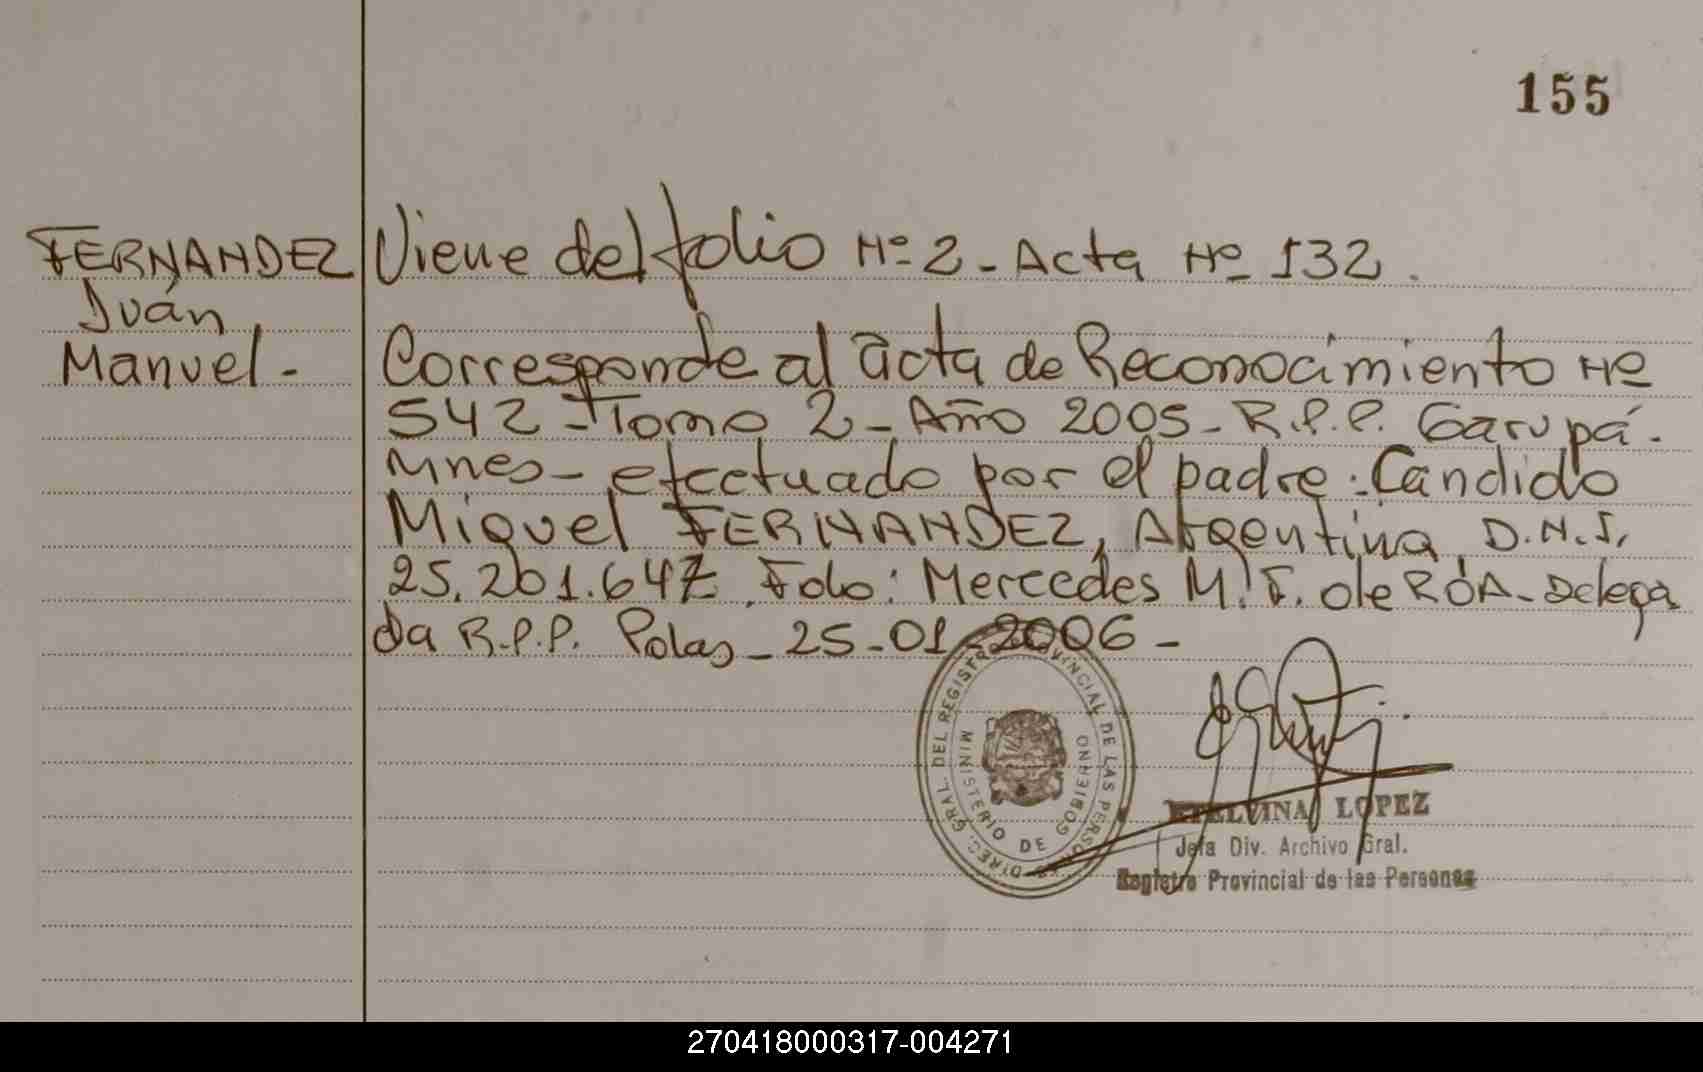 155
FERNANDEZ
Juán
Manuel -
Viene del folio Nº 2 - Acta Nº 132.
Corresponde al acta de Reconocimiento Nº
542 - Tomo 2 - Año 2005 - R.P.P. Garupá.
Mnes - efectuado por el padre: Candido
Miguel FERNANDEZ, Argentina, D.N.I.
25.201.647. Fdo: Mercedes M. F. de ROA - Delega
da R.P.P. Pdas - 25-01-2006 -
DIREC. GRAL. DEL REGISTRO PROVINCIAL DE LAS PERSONAS
MINISTERIO DE GOBIERNO
ETELVINA LOPEZ
Jefa Div. Archivo Gral.
Registro Provincial de las Personas
270418000317-004271